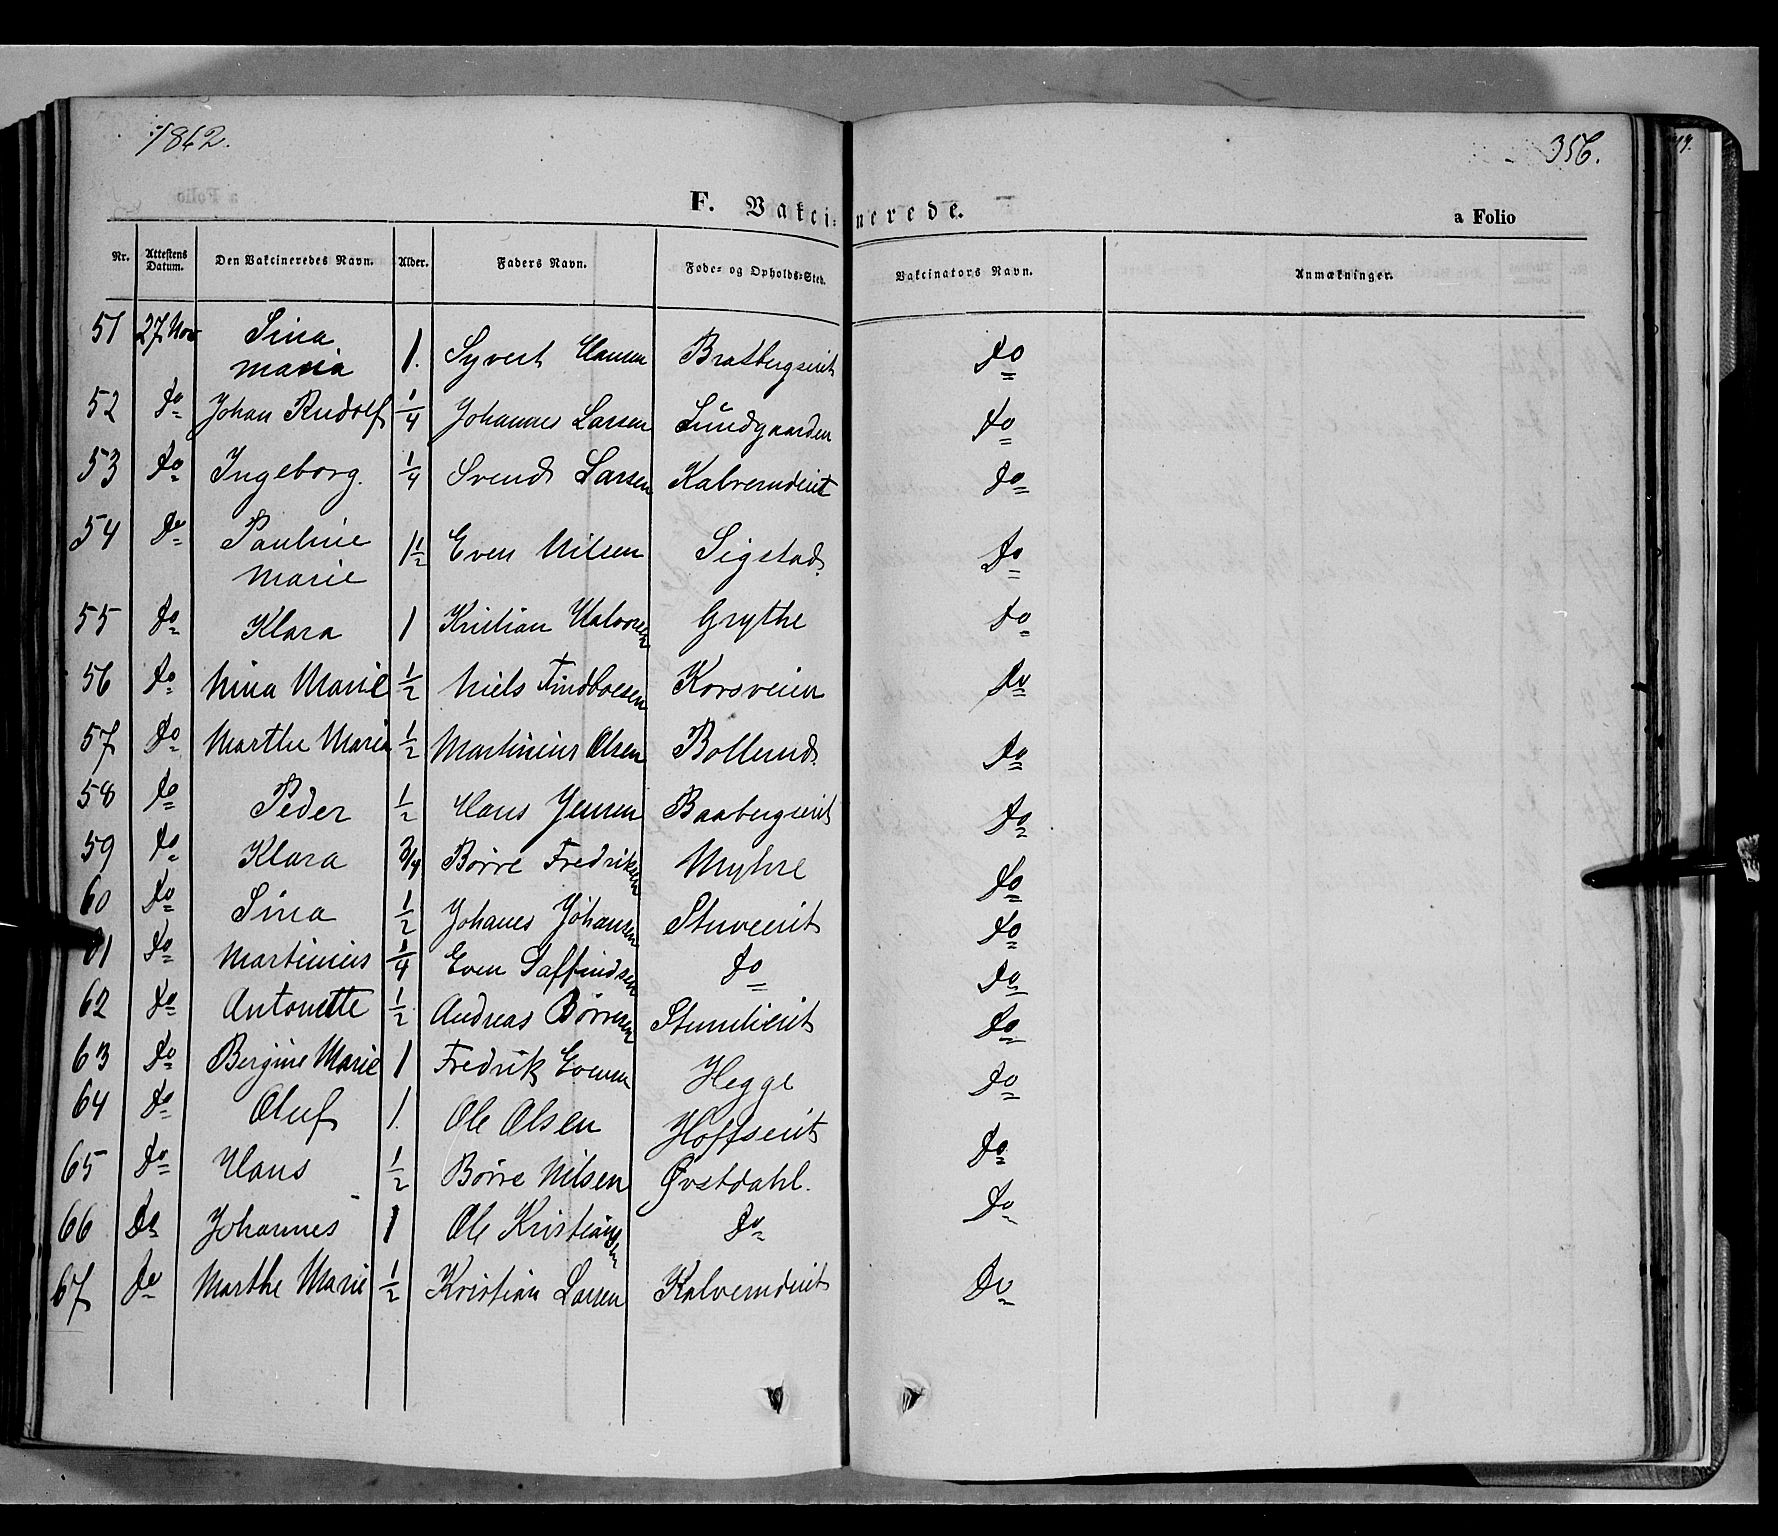 1862.
356.
F. Vakcinerede.
a Folio
Nr. Attestens Datum. Den Vakcineredes Navn. Alder. Faders Navn. Føde- og Opholds-Sted. Vakcinators Navn. Anmærkninger.
51 27 Nov Sina Maria 1. Syvert Hansen Bratbergseiet do
52 do Johan Rudolf 1/4 Johannes Larsen Lundgaarden do
53 do Ingeborg. 1/4 Svend Larsen Kalverudeiet do
54 do Pauline Marie 1 1/2 Even Nilsen Sigstad. do
55 do Klara 1 Kristian Halvorsen Grythe do
56 do Nina Marie 1/2 Niels Korsveien do
57 do Marthe Maria 1/2 Martinius Olsen Bollerud. do
58 do Peder 1/2 Hans Jensen do
59 do Klara 3/4 Børre Fredriksen Myhre do
60 do Sina 1/2 Johanes Johansen do
61 do Martinius 1/4 Even do do
62 do Antonette 1/2 Andreas Børresen do
63 do Bergine Marie 1 Fredrik Evensen Hegge do
64 do Oluf 1. Ole Olsen Hoffseiet do
65 do Hans 1/2 Børre Nilsen Øvstdahl. do
66 do Johannes 1 Ole Kristiansen do do
67 do Marthe Marie 1/2 Kristian Larsen Kalverudeiet do